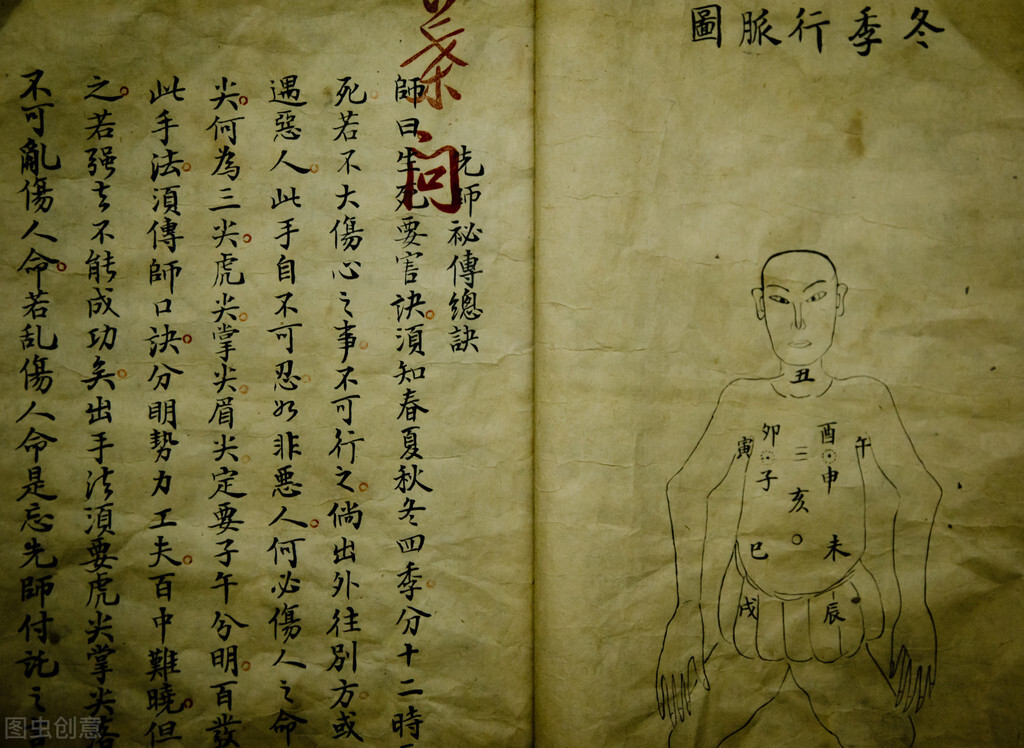 冬季行脈圖
丑
卯
酉
寅
午
三
子
申
亥
巳
未
戌
辰
葉问
先師祕傳總訣
師曰生死要害訣。須知春夏秋冬四季。分十二時
死。若不大傷心之事。不可行之。倘出外往別方。或
遇惡人。此手自不可忍。如非悪人。何必傷人之命
尖。何為三尖。虎尖。掌尖。眉尖。定要子午分明。百發
此手法。須傳師口訣。分明勢力工夫。百中難曉。但
之。若强去不能成功矣。出手法須要虎尖掌尖
不可亂傷人命。若乱傷人命是忘先師付託之
图虫创意